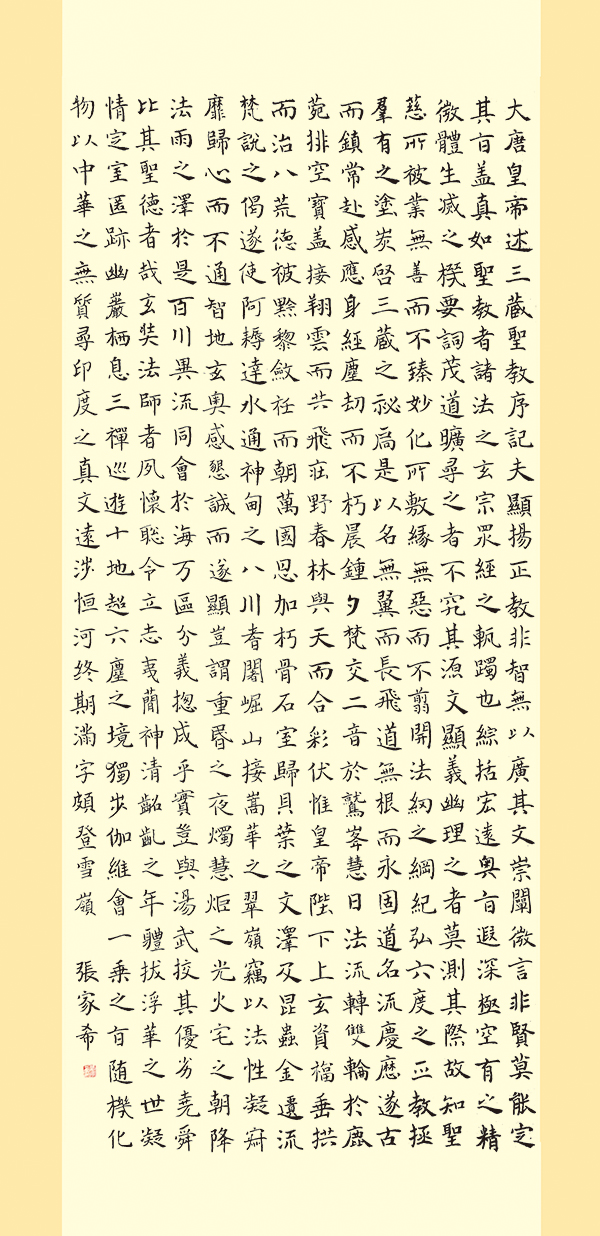 大唐皇帝述三藏聖教序記夫顯揚正教非智無以廣其文崇闡微言非賢莫能定
其旨蓋真如聖教者諸法之玄宗眾經之軌躅也綜括宏遠奧旨遐深極空有之精
微體生滅之機要詞茂道曠尋之者不究其源文顯義幽理之者莫測其際故知聖
慈所被業無善而不臻妙化所敷緣無惡而不翦開法網之綱紀弘六度之正教拯
羣有之塗炭啓三藏之祕扃是以名無翼而長飛道無根而永固道名流慶歷遂古
而鎮常赴感應身經塵劫而不朽晨鐘夕梵交二音於鷲峯慧日法流轉雙輪於鹿
菀排空寶蓋接翔雲而共飛莊野春林與天而合彩伏惟皇帝陛下上玄資福垂拱
而治八荒德被黔黎斂衽而朝萬國恩加朽骨石室歸貝葉之文澤及昆蟲金遺流
梵說之偈遂使阿耨達水通神甸之八川耆闍崛山接嵩華之翠嶺竊以法性凝寂
靡歸心而不通智地玄奧感懇誠而遂顯豈謂重昏之夜燭慧炬之光火宅之朝降
法雨之澤於是百川異流同會於海万區分義揔成乎實豈與湯武挍其優劣堯舜
比其聖德者哉玄奘法師者夙懷聡令立志夷簡神清齠齔之年體拔浮華之世凝
情定室匿跡幽巖栖息三禪巡遊十地超六塵之境獨步伽維會一乘之旨随機化
物以中華之無質尋印度之真文遠涉恒河終期滿字頻登雪嶺 張家希